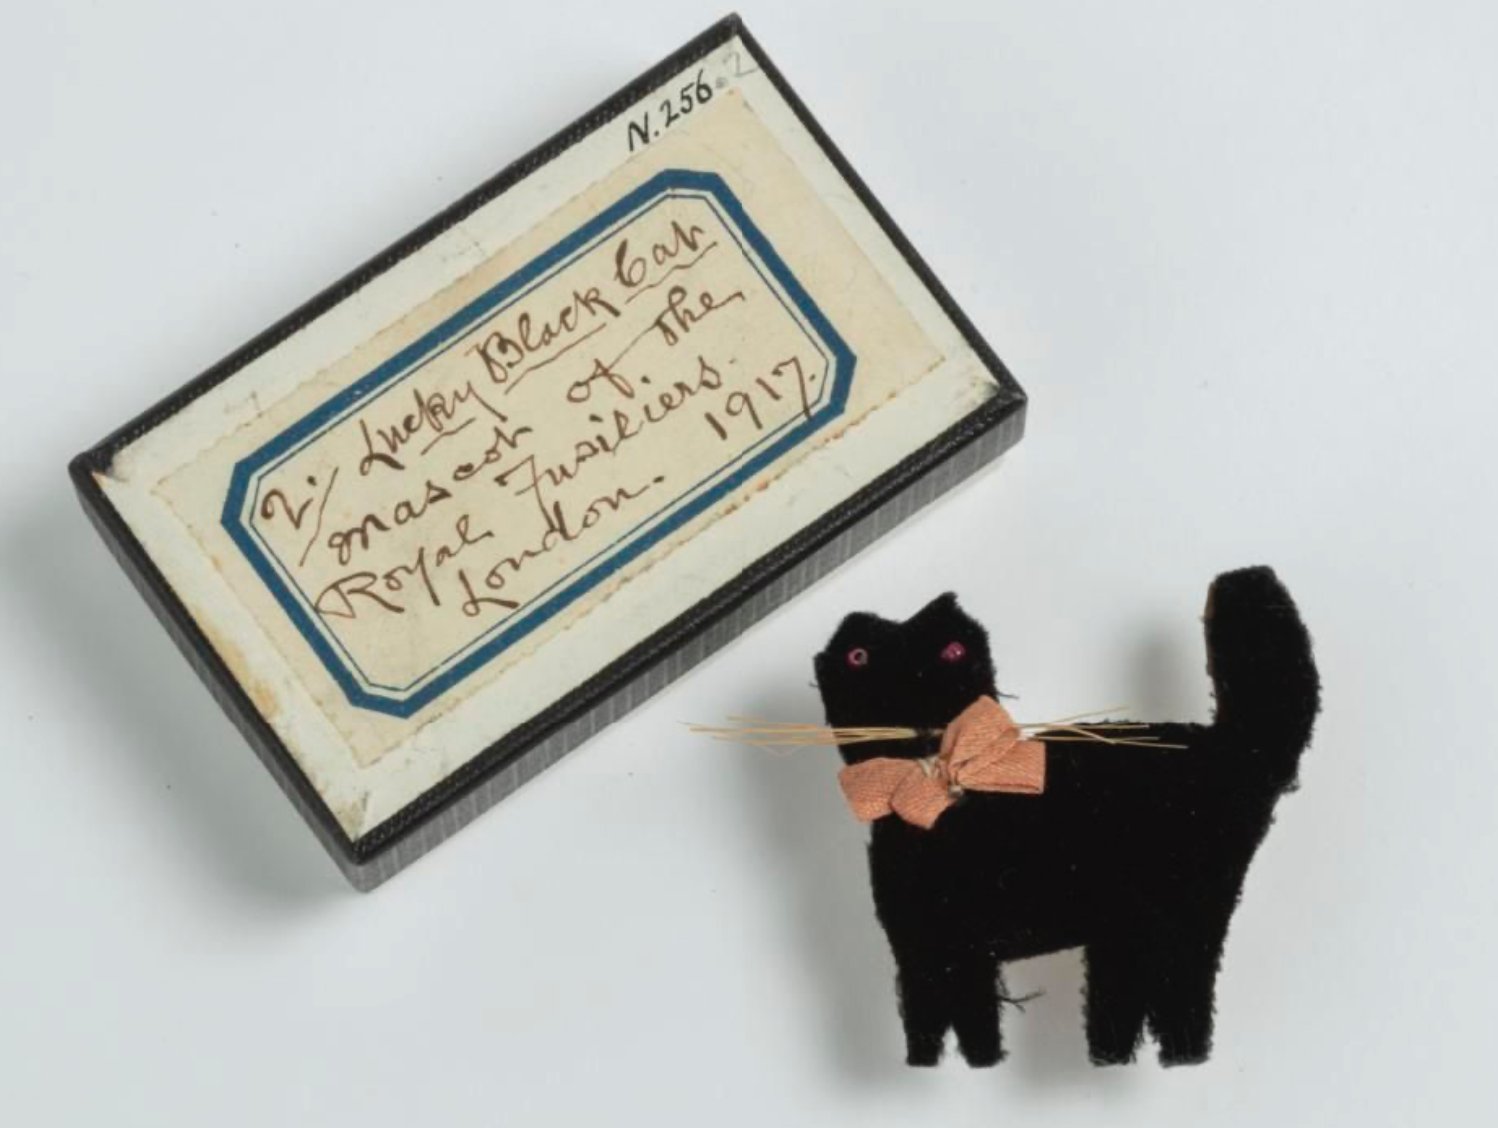 N.256.2
2./ Lucky Black Cat
mascot of the
Royal Fusiliers.
London. 1917.